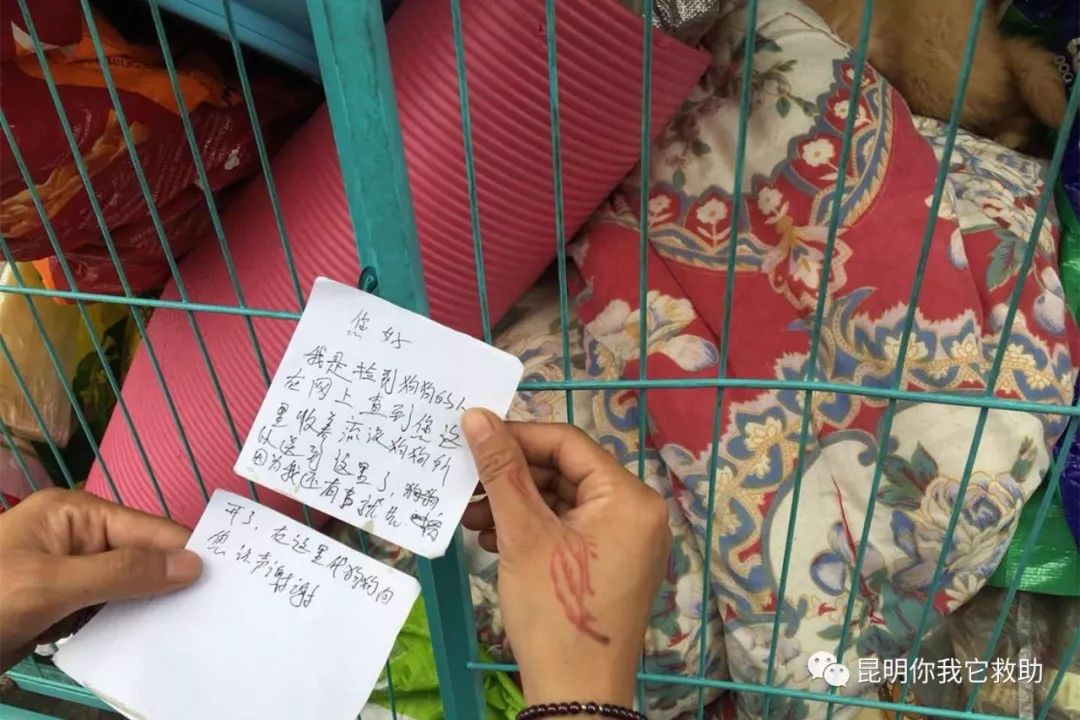 您好
我是捡到狗狗的人
在网上查到您这
里收养流浪狗狗所
以送到这里了，狗狗
因为我还有事就先离
开了，在这里代狗狗向
您说声谢谢
昆明你我它救助